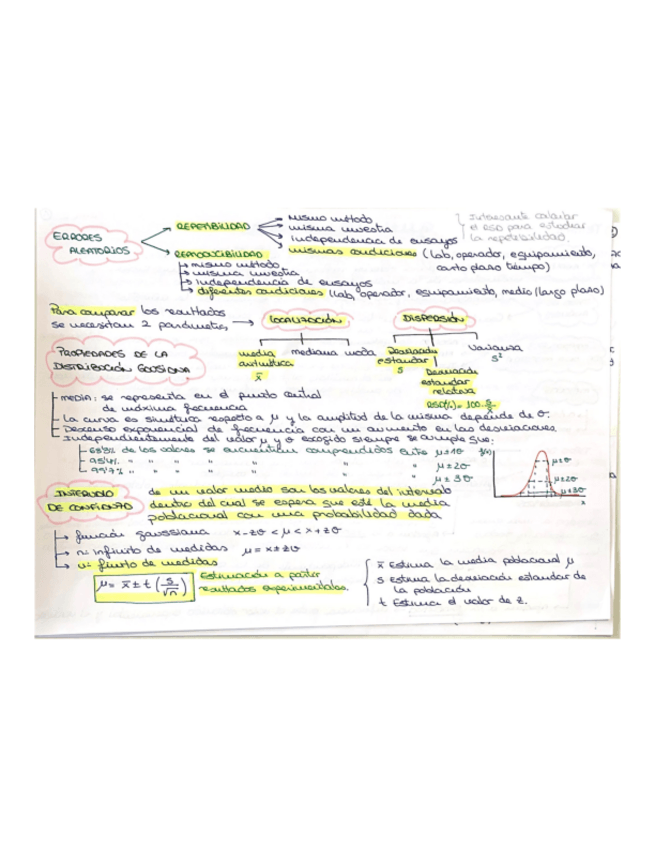 ERRORES ALEATORIOS
REPETIBILIDAD
Mismo método
misma muestra
Independencia de ensayos
mismas condiciones (Lab, operador, equipamiento, corto plazo tiempo)
Interesante calcular
el RSD para estudiar
la repetibilidad.
REPRODUCIBILIDAD
mismo método
misma muestra
independencia de ensayos
diferentes condiciones (lab, operador, equipamiento, medio/largo plazo)
Para comparar los resultados
se necesitan 2 parámetros
LOCALIZACIÓN
DISPERSIÓN
media aritmética x̄
mediana
moda
Desviación estandar s
Desviación estandar relativa
RSD(%) = 100 · s/x̄
Varianza s²
PROPIEDADES DE LA
DISTRIBUCIÓN GAUSSIANA
MEDIA: se representa en el punto central
de máxima frecuencia
La curva es simétrica respecto a μ y la amplitud de la misma depende de σ.
Descenso exponencial de frecuencia con un aumento en las desviaciones.
Independientemente del valor μ y σ escogido siempre se cumple que:
de los valores se encuentran comprendidos entre μ±1σ
95'4% " " " " " " μ±2σ
99'7% " " " " " " μ±3σ
f(x)
μ±σ
μ±2σ
μ±3σ
x
INTERVALO
DE CONFIANZA
de un valor medio son los valores del intervalo
dentro del cual se espera que esté la media
poblacional con una probabilidad dada
función gaussiana x-zσ < μ < x+zσ
nº infinito de medidas μ = x±zσ
nº finito de medidas
μ = x̄ ± t (s/√n)
Estimación a partir
resultados experimentales.
x̄ Estima la media poblacional μ
s estima la desviación estandar de
la población
t Estima el valor de z.